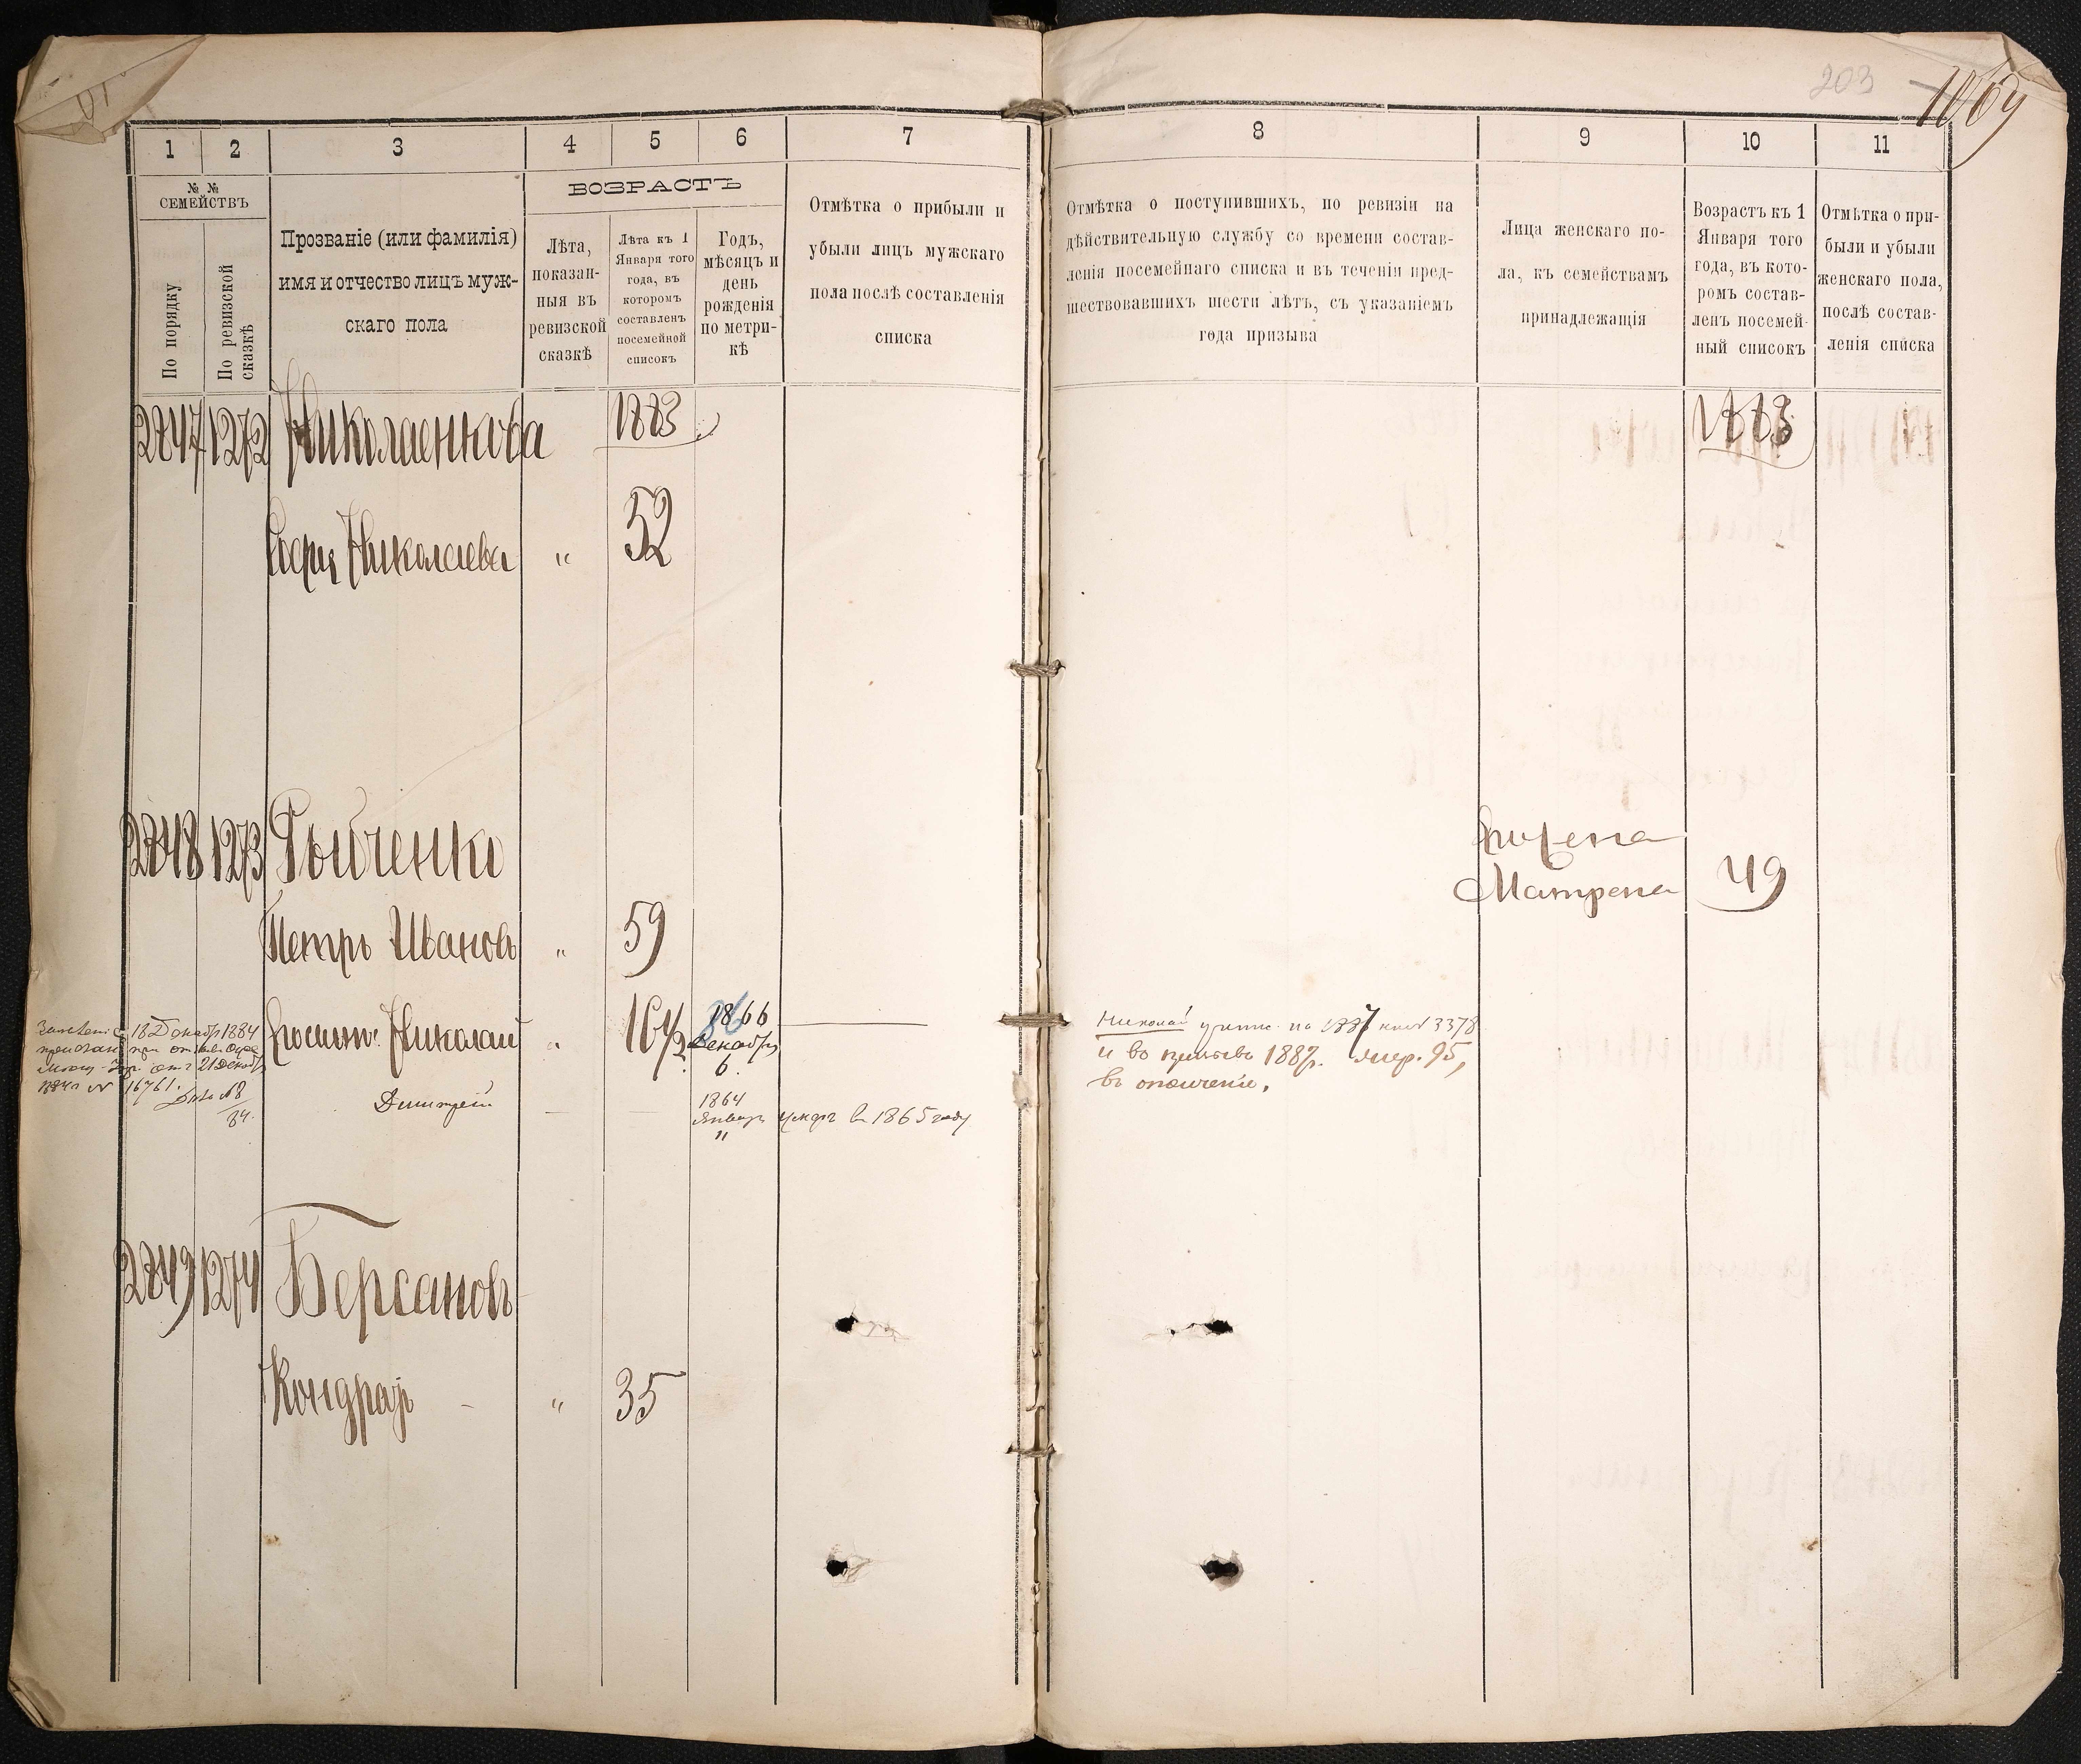 203
1
2
3
4
5
6
7
8
9
10
11
№ №
СЕМЕЙСТВЪ
По порядку
По ревизской
сказкѣ
Прозваніе (или фамилія)
имя и отчество лицъ муж-
скаго пола
ВОЗРАСТЪ
Лѣта,
показан-
ныя въ
ревизской
сказкѣ
Лѣта къ 1
Января того
года, въ
которомъ
составленъ
посемейной
списокъ
Годъ,
мѣсяцъ и
день
рожденія
по метри-
кѣ
Отмѣтка о прибыли и
убыли лицъ мужскаго
пола послѣ составленія
списка
Отмѣтка о поступившихъ, по ревизіи на
дѣйствительную службу со времени состав-
ленія посемейнаго списка и въ теченіи пред-
шествовавшихъ шести лѣтъ, съ указаніемъ
года призыва
Лица женскаго по-
ла, къ семействамъ
принадлежащія
Возрастъ къ 1
Января того
года, въ кото-
ромъ состав-
ленъ посемей-
ный списокъ
Отмѣтка о при-
были и убыли
женскаго пола,
послѣ состав-
ленія списка
2847 1272 Николаенкова 1883 1883
Николаева " 52
2848 1273 Рыбченко
Матрена 49
Петръ Ивановъ " 59
Николай " 16 1/2 1866
Декабря
6
Николай 3378
и во 1887г. 95,
въ ополченіе.
18 Декабря 1884
16761.
Дмитрій 1864
Январь
11
въ 1865 году
2849 1274 Берсановъ
Кондратъ " 35